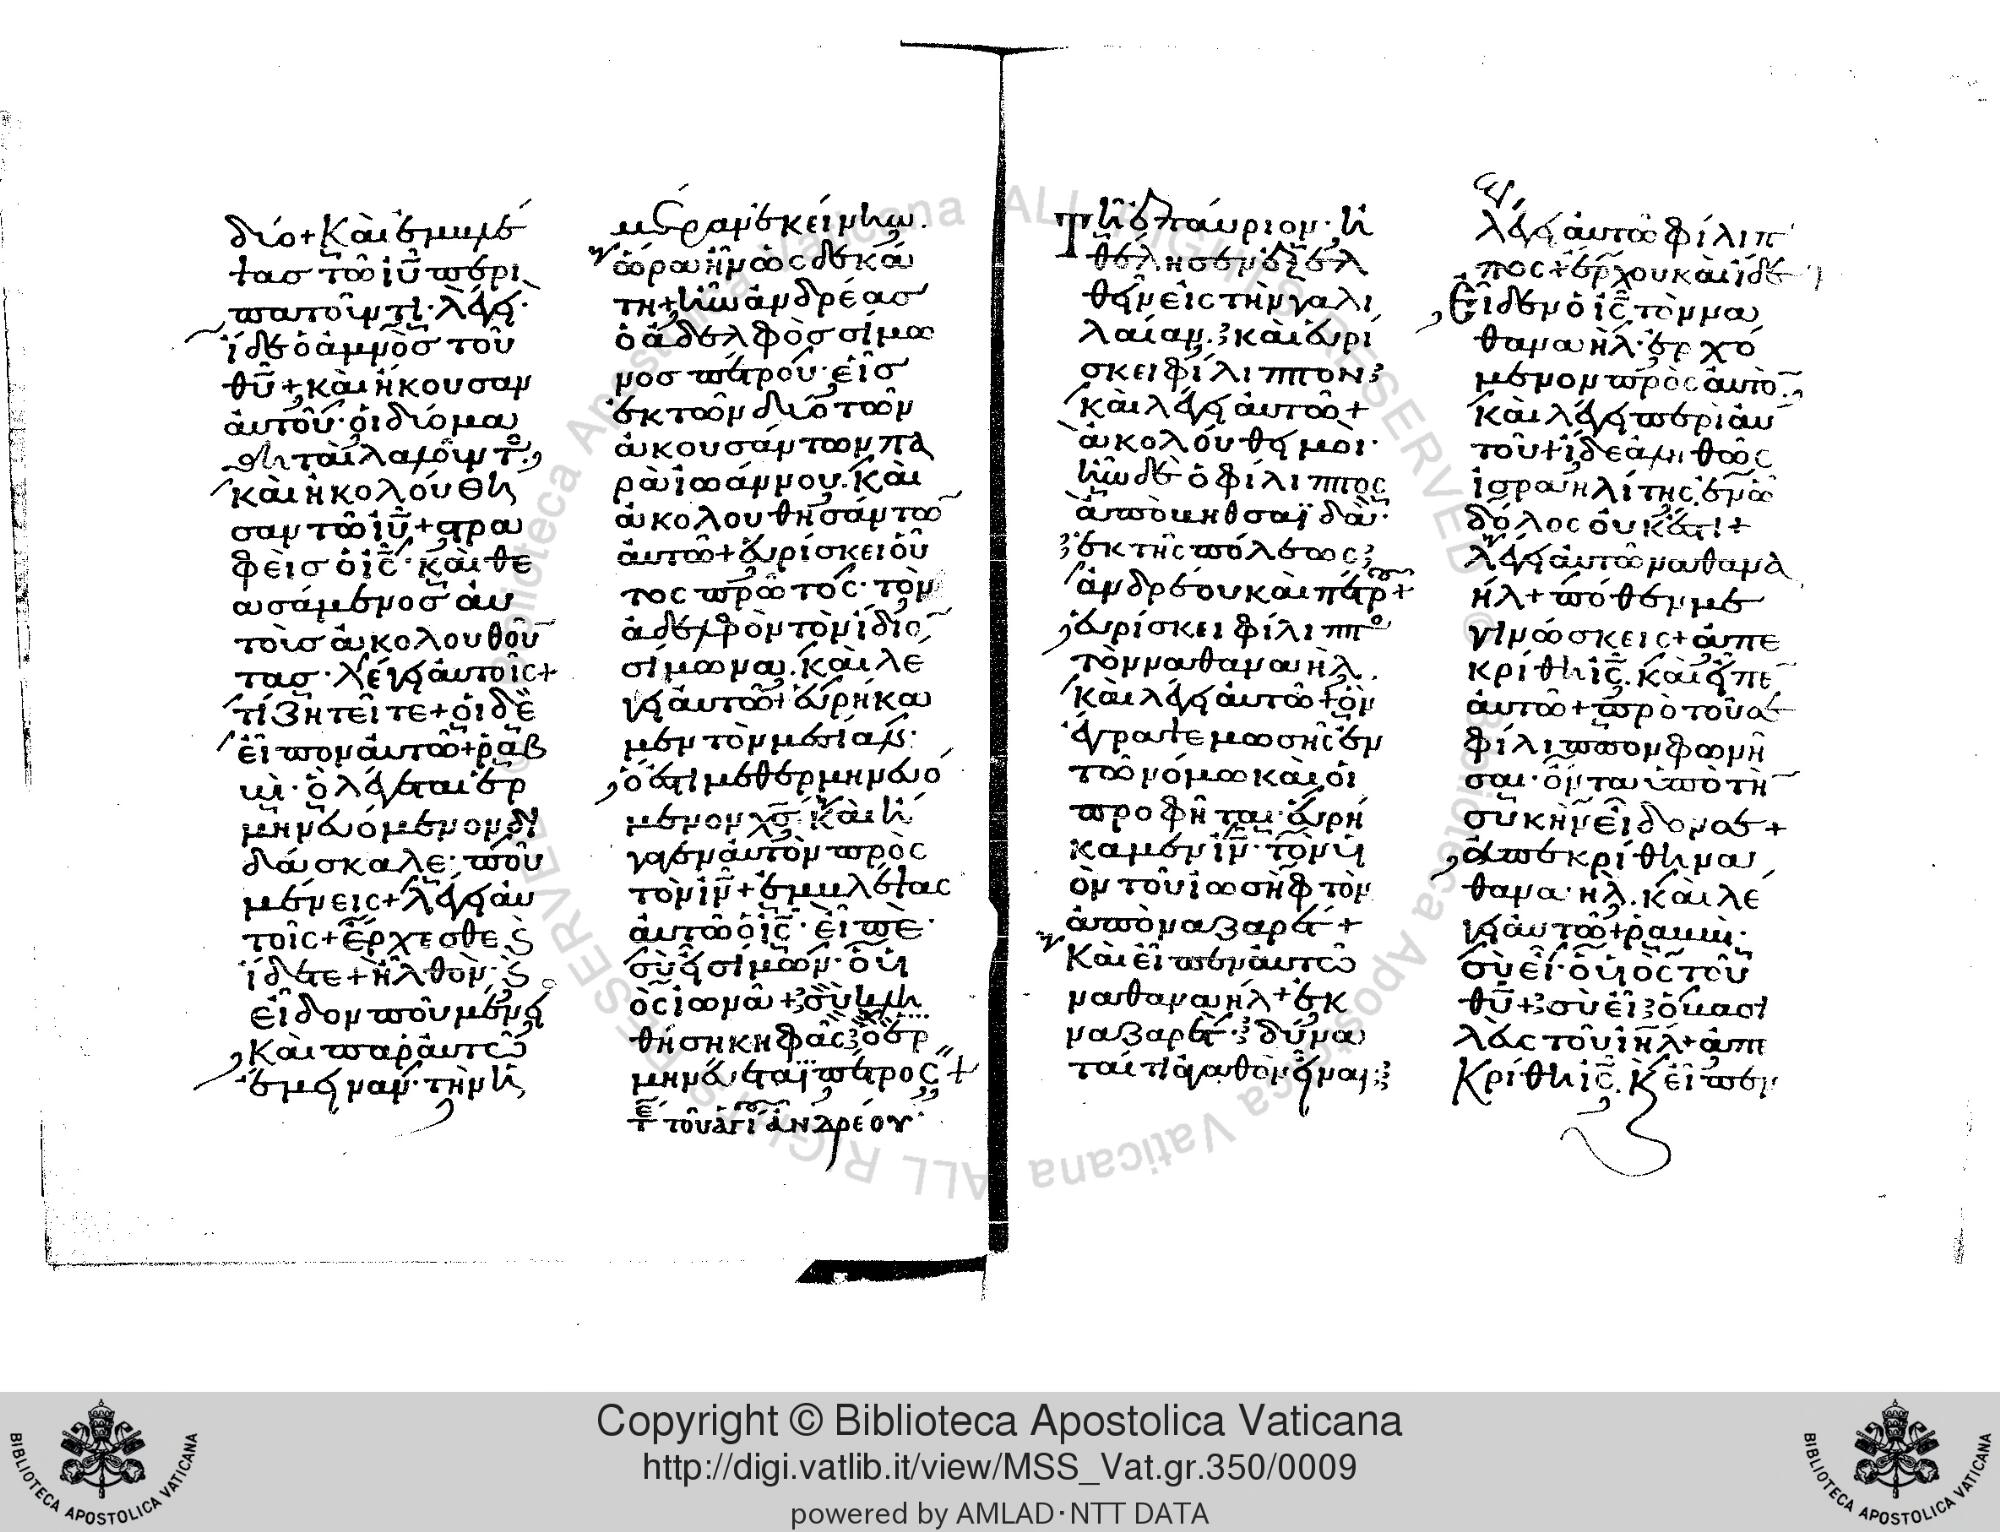 δύο + Και ἐμβλέ
ψας τῶ ιῦ περι
πατοῦντι · λέγει ·
ἴδε ὁ ἀμνὸς τοῦ
θῦ + και ἤκουσαν
αὐτοῦ · οἱ δύο μα
θηται λαλοῦντο
και ἠκολούθη
σαν τῶ ιῦ + στρα
φεὶς ὁ ις · και θε
ασάμενος αυ
τοὺς ἀκολουθοῦ
τας · λέγει αὐτοῖς +
τί ζητεῖτε + οἱ δὲ
εἶπον αὐτῶ + ραβ
βι · ὃ λέγεται ἑρ
μηνευόμενον δι
δάσκαλε · ποῦ
μένεις + λέγει αὐ
τοῖς + ἔρχεσθε ϗ
ἴδετε + ἦλθον · ϗ
εἶδον ποῦ μένει
Και παρ αὐτῶ
ἔμειναν · τὴν ἡ
μέραν ἐκείνην ·
ὥρα ἦν ὡς δεκά
τη + ἦν ἀνδρέας
ὁ ἀδελφὸς σίμω
νος πέτρου · εἷς
ἐκ τῶν δύο τῶν
ἀκουσάντων πα
ρὰ ἰωάννου · και
ἀκολουθησάντω
αὐτῶ + εὑρίσκει οὗ
τος πρῶτος · τὸν
ἀδελφὸν τὸν ἴδιο
σίμωνα · και λέ
γει αὐτῶ + εὑρήκα
μεν τὸν μεσίαν ·
ὅ ἐστι μεθερμηνευό
μενον χς · και ἤ
γαγεν αὐτὸν πρὸς
τὸν ιν + ἐμβλέψας
αὐτῶ ὁ ις · εἶπε ·
σὺ εἶ σίμων · ὁ υἱ
ὸς ἰωνᾶ + σὺ κλη
θήση κηφᾶς ὃ ἑρ
μηνεύεται πέτρος +
τοῦ ἁγι ἀνδρέου
Τῆ ἐπαύριον · ἠ
θέλησεν ἐξελ
θεῖν εἰς τὴν γαλι
λαίαν · και εὑρί
σκει φίλιππον
και λέγει αὐτῶ +
ἀκολούθει μοι ·
ἦν δὲ ὁ φίλιππος
ἀπὸ βηθσαϊδά ·
ἐκ τῆς πόλεως
ἀνδρέου και πέτρ +
εὑρίσκει φίλιππο
τὸν ναθαναὴλ
και λέγει αὐτῶ + ὃν
ἔγραψε μωσῆς ἐν
τῶ νόμω και οἱ
προφῆται · εὑρή
καμεν ιν · τὸν υἱ
ὸν τοῦ ἰωσὴφ τὸν
ἀπὸ ναζαρέτ +
Και εἶπεν αὐτῶ
ναθαναήλ + ἐκ
ναζαρὲτ · δύνα
ται τι ἀγαθὸν εἶναι
λέγει αὐτῶ φίλιπ
πος + ἔρχου και ἴδε
Εἶδεν ὁ ις τὸν να
θαναὴλ · ἐρχό
μενον πρὸς αὐτὸ
και λέγει περὶ αυ
τοῦ + ἴδε ἀληθῶς
ἰσραηλίτης · ἐν ω
δόλος οὐκ ἔστι +
λέγει αὐτῶ ναθανα
ήλ + πόθεν με
γινώσκεις + ἀπε
κρίθη ις · και εἶπε
αὐτῶ + πρὸ τοῦ σε
φίλιππον φωνῆ
σαι · ὄντα ὑπὸ τὴ
συκῆν εἶδον σε +
ἀπεκρίθη να
θαναήλ · και λέ
γει αὐτῶ + ραββι ·
σὺ εἶ · ὁ υἱὸς τοῦ
θῦ + σὺ εἶ ὁ βασι
λεὺς τοῦ ιηλ + ἀπε
κρίθη ις · ϗ εἶπεν
Copyright © Biblioteca Apostolica Vaticana
http://digi.vatlib.it/view/MSS_Vat.gr.350/0009
powered by AMLAD·NTT DATA
BIBLIOTECA APOSTOLICA VATICANA
BIBLIOTECA APOSTOLICA VATICANA